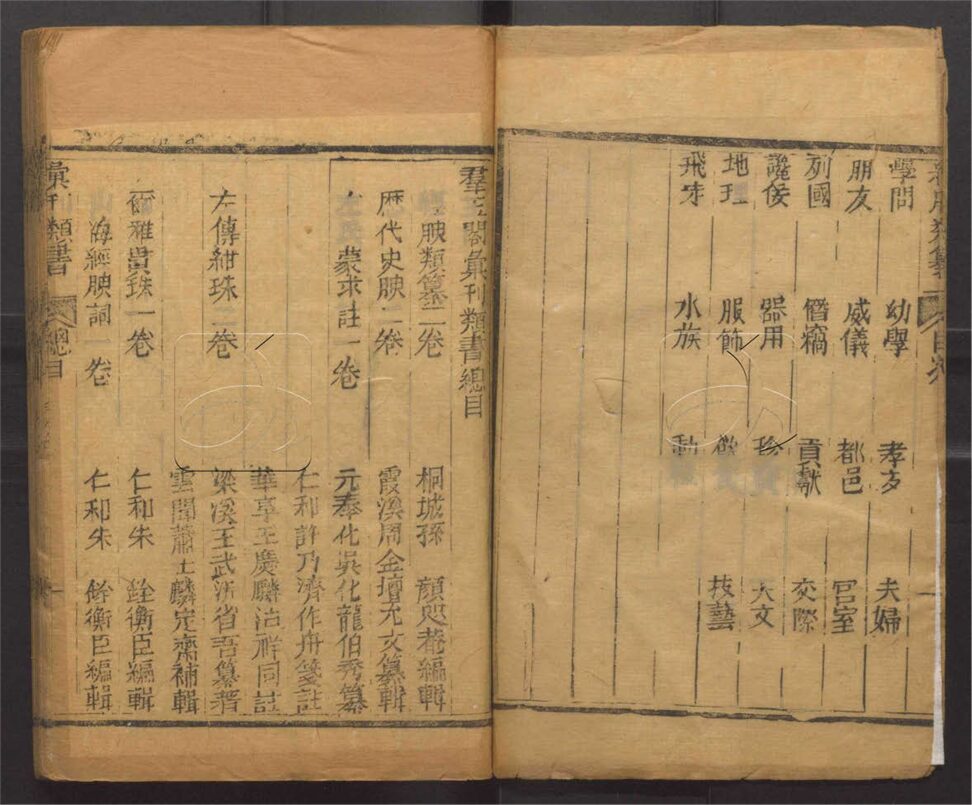 學問 幼學 孝友 夫婦
朋友 威儀 都邑 宮室
列國 僭竊 貢獻 交際
讒佞 器用 珍寶 天文
地理 服飾 飲食 技藝
飛禽 水族 動植
目次
羣玉閣彙刊類書總目
經腴類纂二卷 桐城孫 顏
編輯
歷代史腴二卷 霞溪周金壇
纂輯
蒙求註一卷 元奉化吳化龍伯秀纂
仁和許乃濟作舟箋註
華亭王慶麟治祥同註
左傳紺珠二卷 梁溪王武沂省吾纂著
雲間蕭士麟定齋補輯
爾雅貫珠一卷 仁和朱 銓衡臣編輯
山海經腴詞一卷 仁和朱 銓衡臣編輯
彙刊類書 總目 一